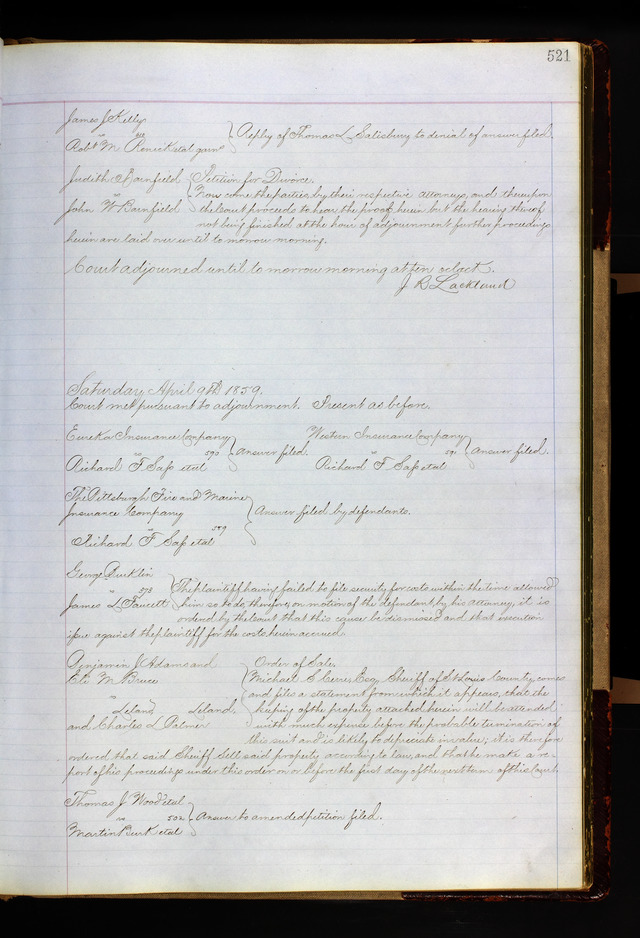 521
James J Kelly
vs
Robt M Renick et al garns } Reply of Thomas L Salisbury to denial of answer filed
Judith Barnfield } Petition for Divorce.
vs Now come the parties by their respective attorneys, and thereupon
John W Barnfield the Court proceeds to hear the proof herein but the hearing thereof
not being finished at the hour of adjournment further proceedings
herein are laid over until to morrow morning.
Court adjourned until to morrow morning at ten oclock.
J R Lackland
Saturday April 9th 1859.
Court met pursuant to adjournment. Present as before.
Eureka Insurance Company
vs 590 } Answer filed.
Richard F Sass et al
Western Insurance Company
vs 591 } Answer filed.
Richard F Sass et al
The Pittsburgh Fire and Marine
Insurance Company } Answer filed by defendants.
vs 589
Richard F Sass et al
George Burklin
vs 573 } The plaintiff having failed to file security for costs within the time allowed
James L Faucett him so to do, therefore, on motion of the defendant, by his attorney, it is
ordered by the Court that this cause be dismissed and that execution
issue against the plaintiff for the costs herein accrued.
Benjamin J Adams and Order of Sale.
Eli M Bruce Michael S Cerre Esq Sheriff of St Louis County, comes
vs and files a statement from which it appears, that the
Leland Leland, keeping of the property attached herein will be attended
and Charles L Palmer with much expense before the probable termination of
this suit and is likely to depreciate in value; it is therefore
ordered that said Sheriff sell said property according to law, and that he make a re-
port of his proceedings under this order on or before the first day of the next term of this Court.
Thomas J Wood et al
vs 502 } Answer to amended petition filed.
Martin Burk et al